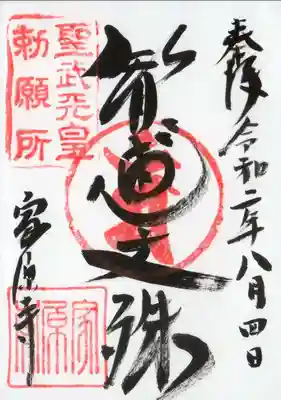 奉拝 令和二年八月四日
智恵文殊
聖武天皇
勅願所
家原寺
家原寺